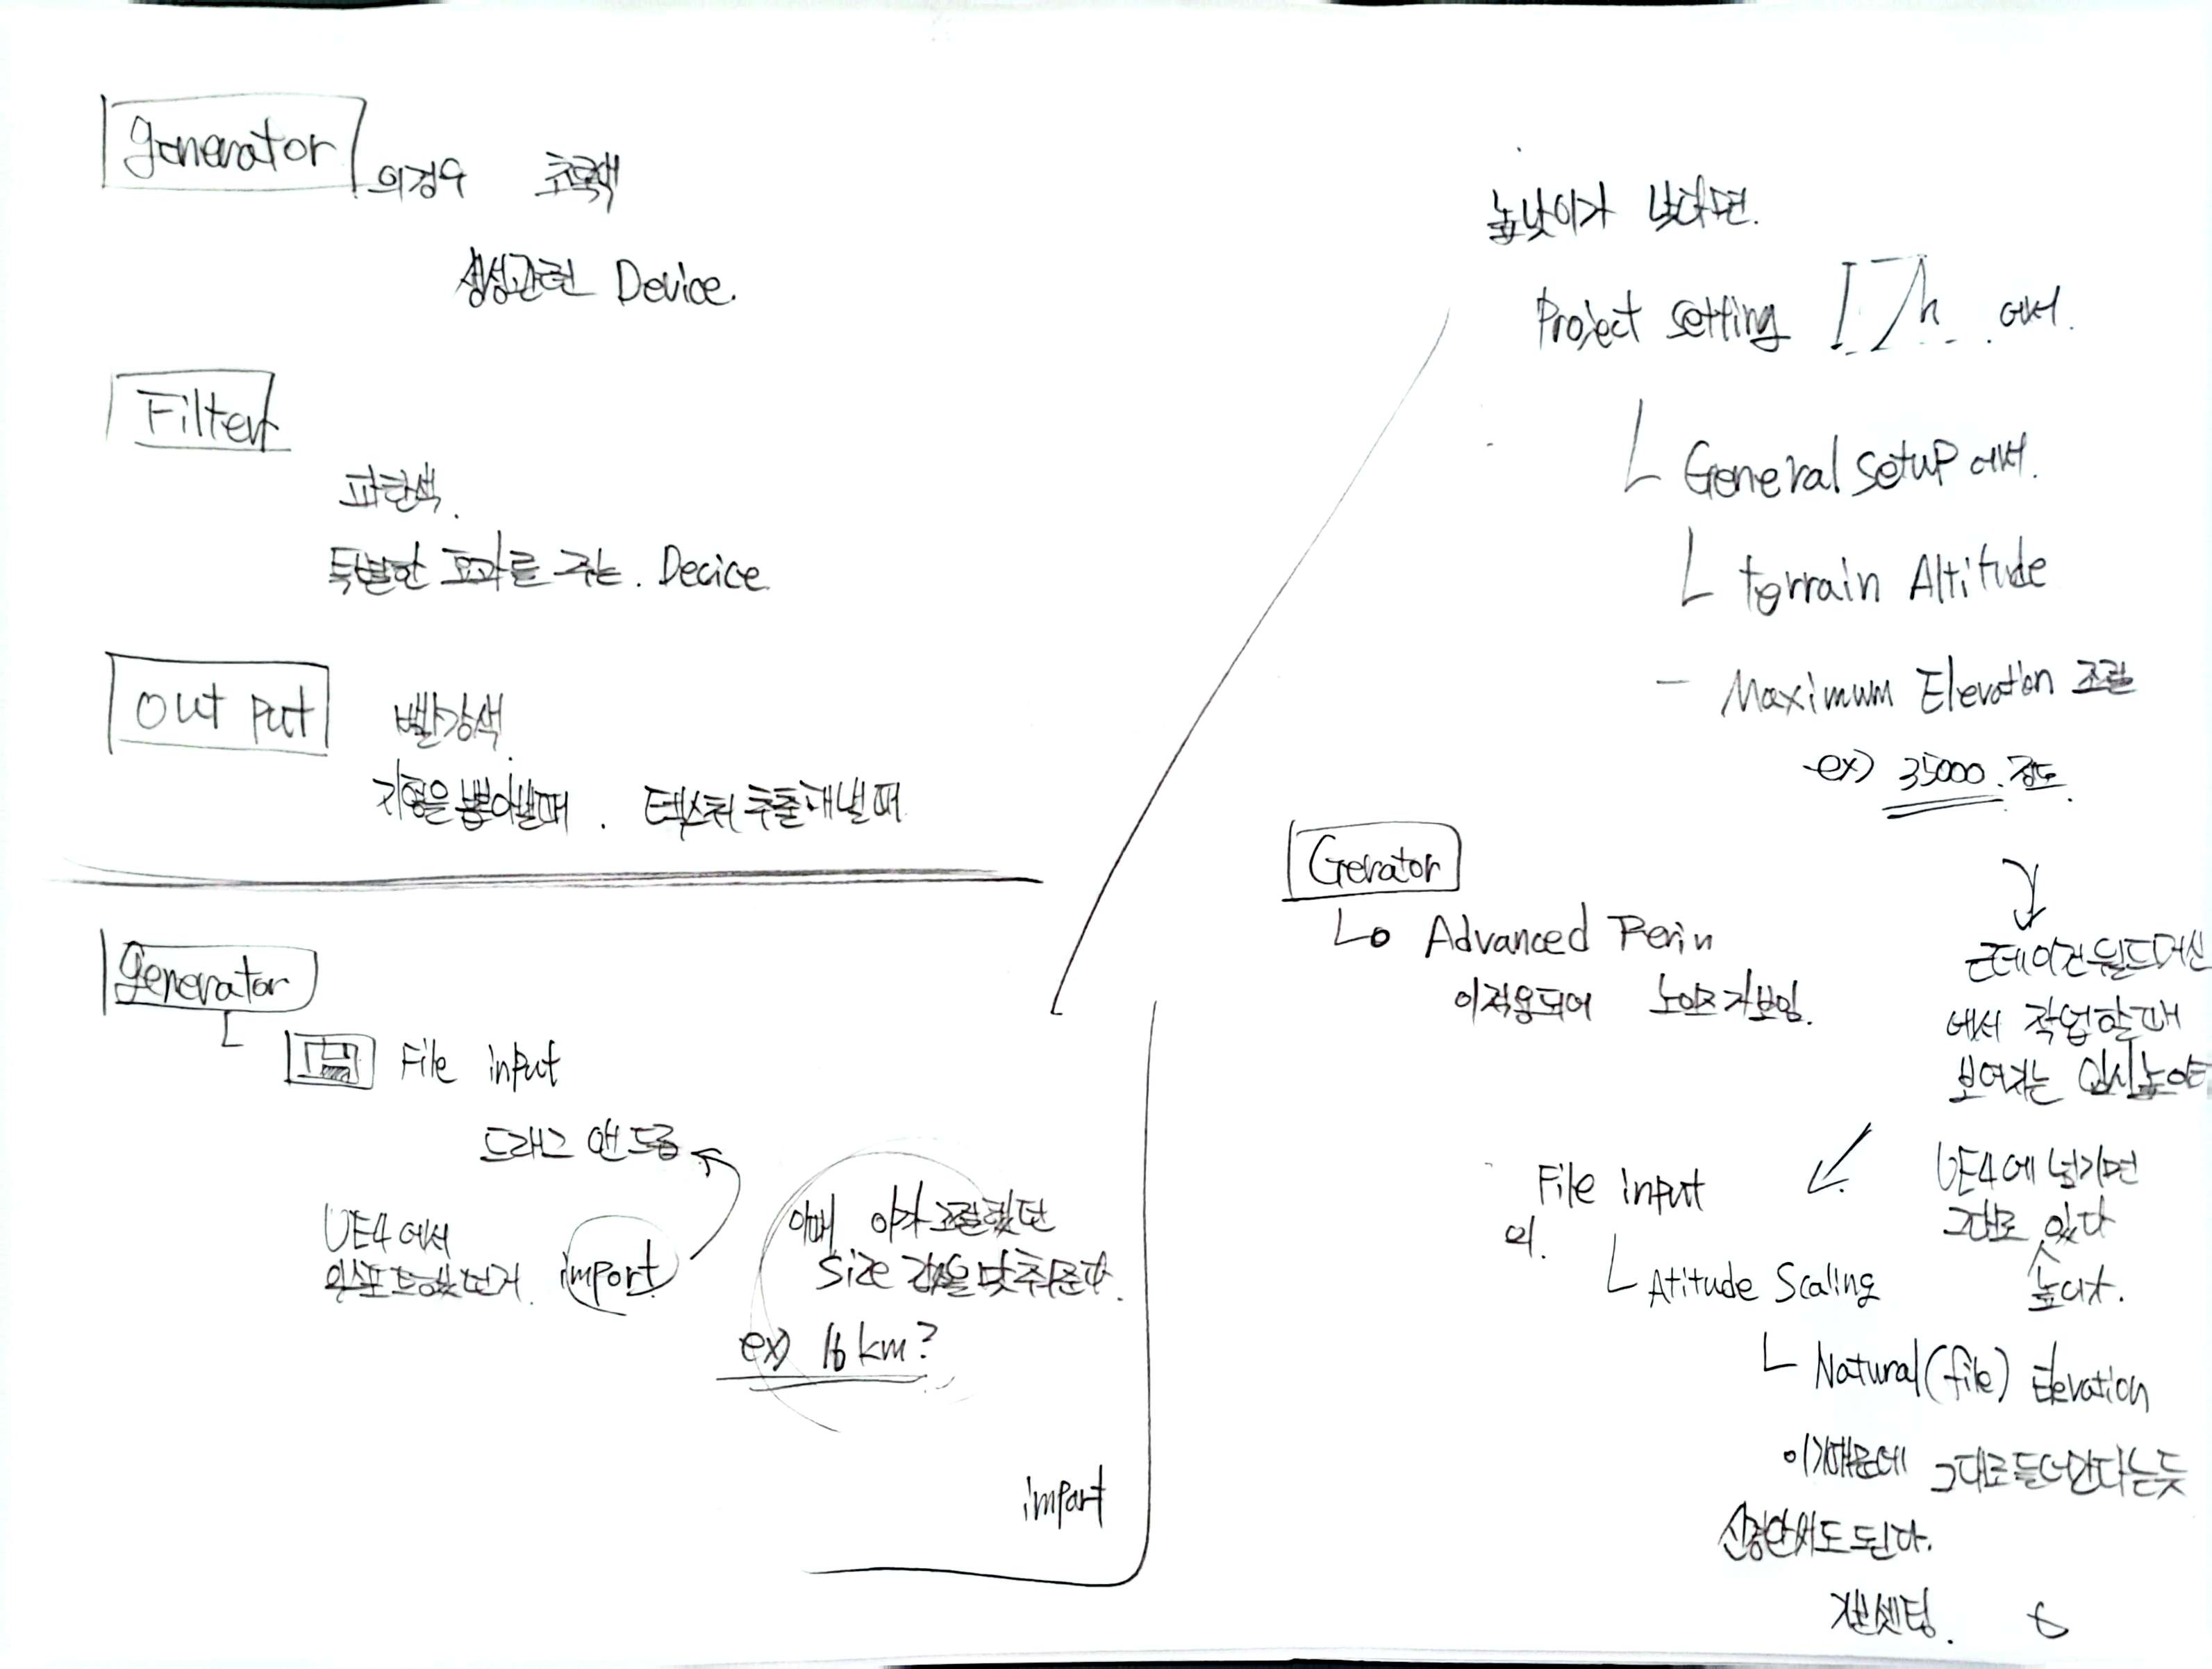 generator 의경우 초록색
생성관련 Device.
Filter
파란색.
특별한 효과를 주는. Decice
out put 빨강색.
지형을 뽑아낼때. 텍스쳐 추출해낼때
generator
File input
드래그 앤 드롭
UE4에서
익스포트했던거. import
이때 아까 조절했던
size 값을 맞춰준다.
ex) 16km?
import
높낮이가 낮다면.
Project setting h 에서.
General setup 에서.
terrain Altitude
- Maximum Elevation 조절
ex) 35000. 정도.
Gerator
Advanced Perin
이적용되어 노이즈가보임.
는 월드머신
에서 작업할때
보여지는 임시높이
UE4에 넘기면
그대로 있다
높다.
File input
의.
Atitude Scaling
Natural(file) Elevation
이기때문에 그대로들어간다는듯
신경안써도된다.
기본셋팅.